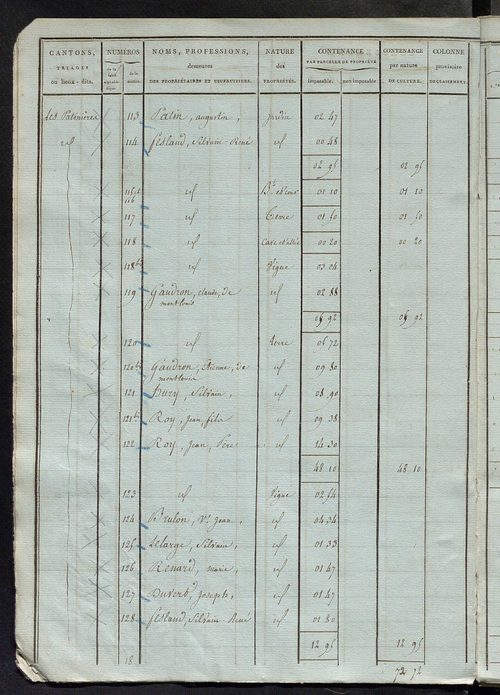 CANTONS, TRIAGES ou lieux-dits. NUMÉROS de la NOMS, PROFESSIONS, demeures DES PROPRIÉTAIRES ET USUFRUITIERS. NATURE des PROPRIÉTÉS. CONTENANCE PAR PARCELLE DE PROPRIÉTÉ imposable. non imposable CONTENANCE par nature DE CULTURE. COLONNE provisoire DE CLASSEMENT.
113 Patin, augustin, jardin 02 47
id 114 Lesland, Silvain-René id 00 48
02 95 02 95
id 01 10 01 10
117 id Terre 01 50 01 50
118 id 00 20 00 20
118 bis id Vigne 03 04
119 Gaudron, claude, de montlouis id 02 88
05 92 05 92
120 id terre 05 72
120 bis Gaudron, Etienne, de montlouis id 09 80
121 Dury, Silvain, id 08 90
121 bis Roy, jean, fils id 09 38
122 Roy, jean, Père id 14 30
48 10 48 10
123 id Vigne 02 54
124 Brulon, Ve jean, id 04 34
125 Lelarge, Silvain, id 01 33
126 Renard, marie, id 01 47
127 joseph, id 01 47
128 Lesland, Silvain-René id 01 80
12 95 12 95
18 72 72